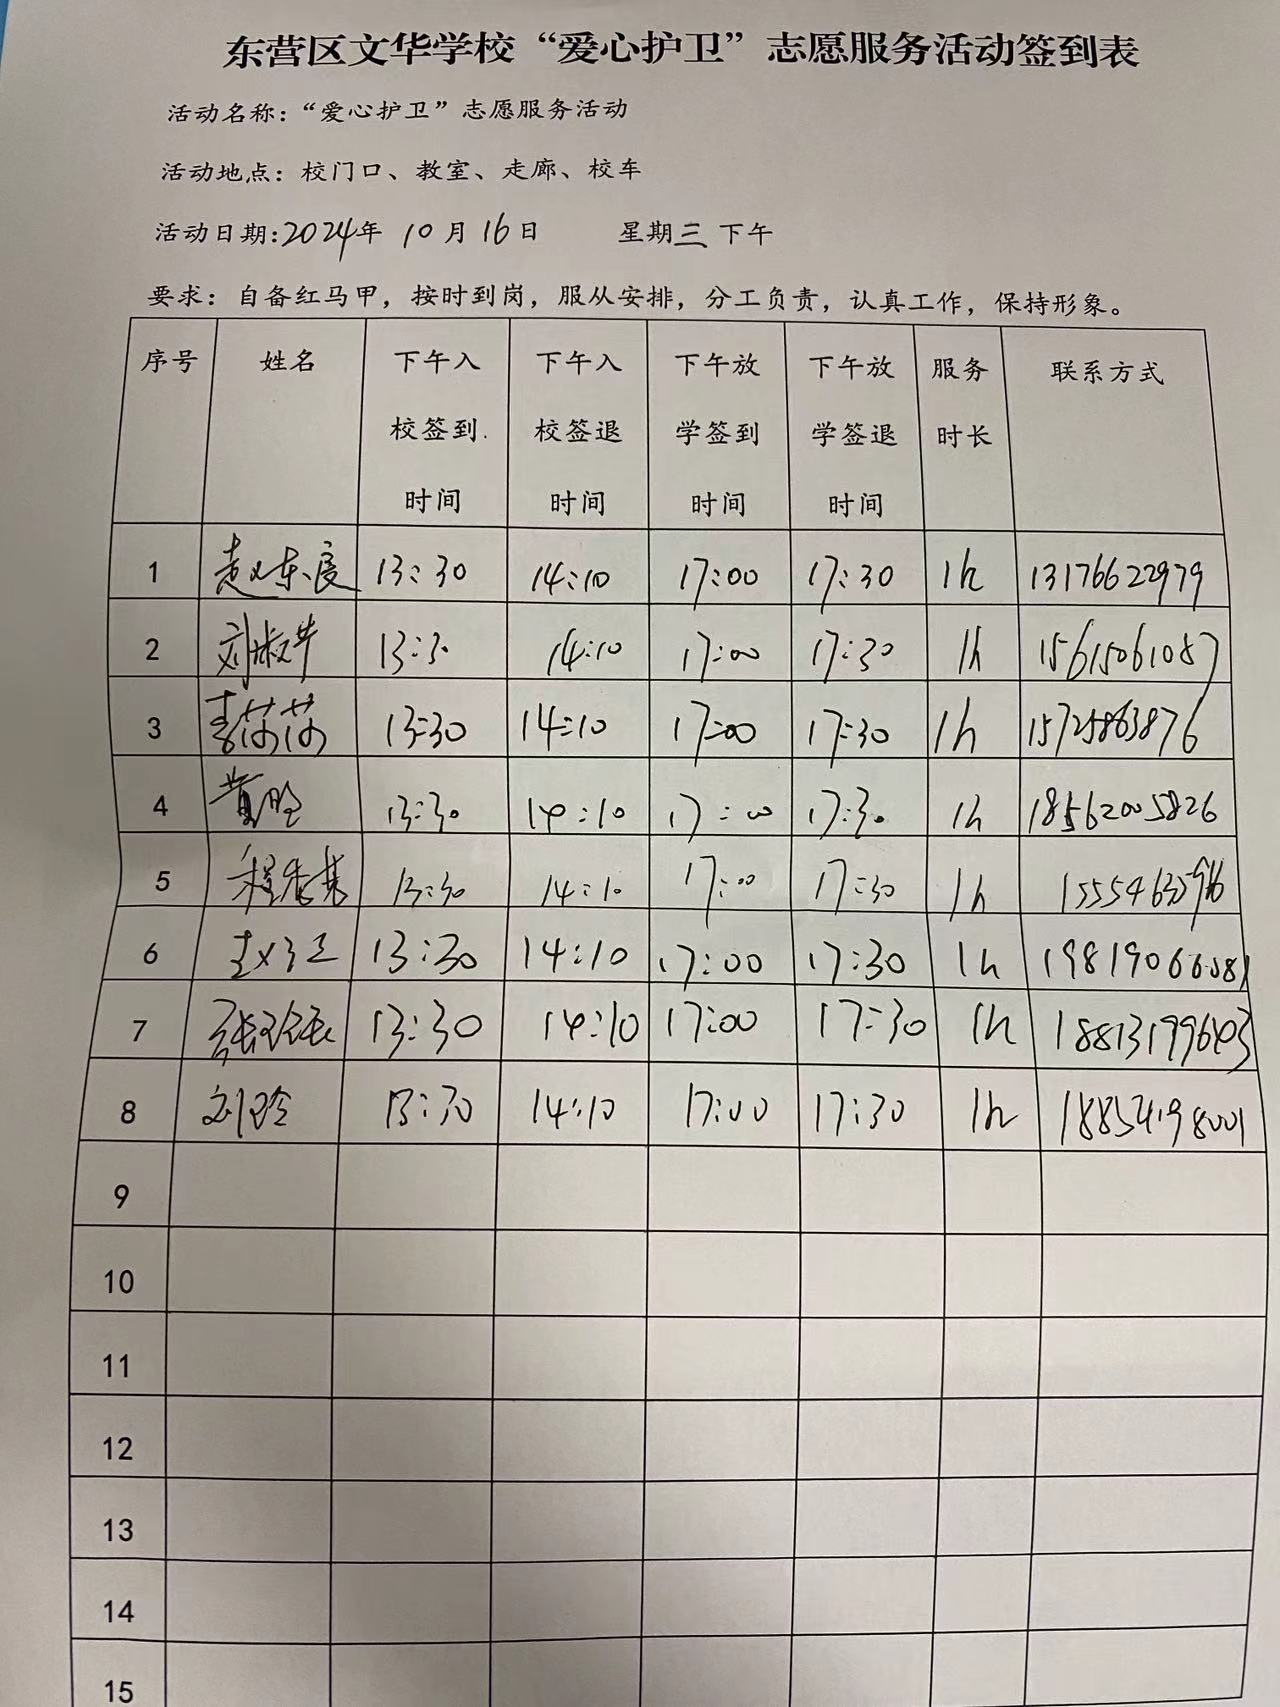 东营区文华学校“爱心护卫”志愿服务活动签到表
活动名称：“爱心护卫”志愿服务活动
活动地点：校门口、教室、走廊、校车
活动日期:2024年 10月16日 星期三 下午
要求：自备红马甲，按时到岗，服从安排，分工负责，认真工作，保持形象。
序号 姓名 下午入校签到时间 下午入校签退时间 下午放学签到时间 下午放学签退时间 服务时长 联系方式
1 13:30 14:10 17:00 17:30 1h 13176622979
2 13:30 14:10 17:00 17:30 1h 15615061087
3 李莎莎 13:30 14:10 17:00 17:30 1h 15725863876
4 13:30 14:10 17:00 17:30 1h 18562005826
5 13:30 14:10 17:00 17:30 1h
6 13:30 14:10 17:00 17:30 1h
7 13:30 14:10 17:00 17:30 1h
8 刘玲 13:30 14:10 17:00 17:30 1h 18854198001
9
10
11
12
13
14
15